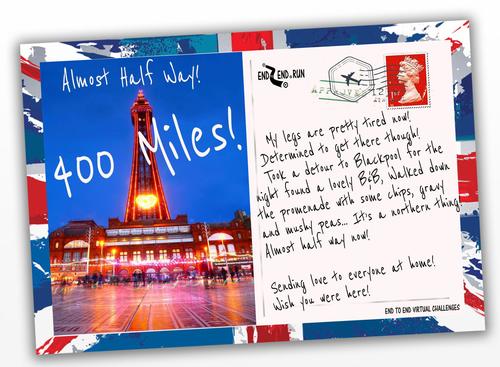 Almost Half Way!
400 Miles!
END 2 END RUN
My legs are pretty tired now!
Determined to get there though!
Took a detour to Blackpool for the
night found a lovely B&B, Walked down
the promenade with some chips, gravy
and mushy peas... It's a northern thing!
Almost half way now!
Sending love to everyone at home!
Wish you were here!
END TO END VIRTUAL CHALLENGES